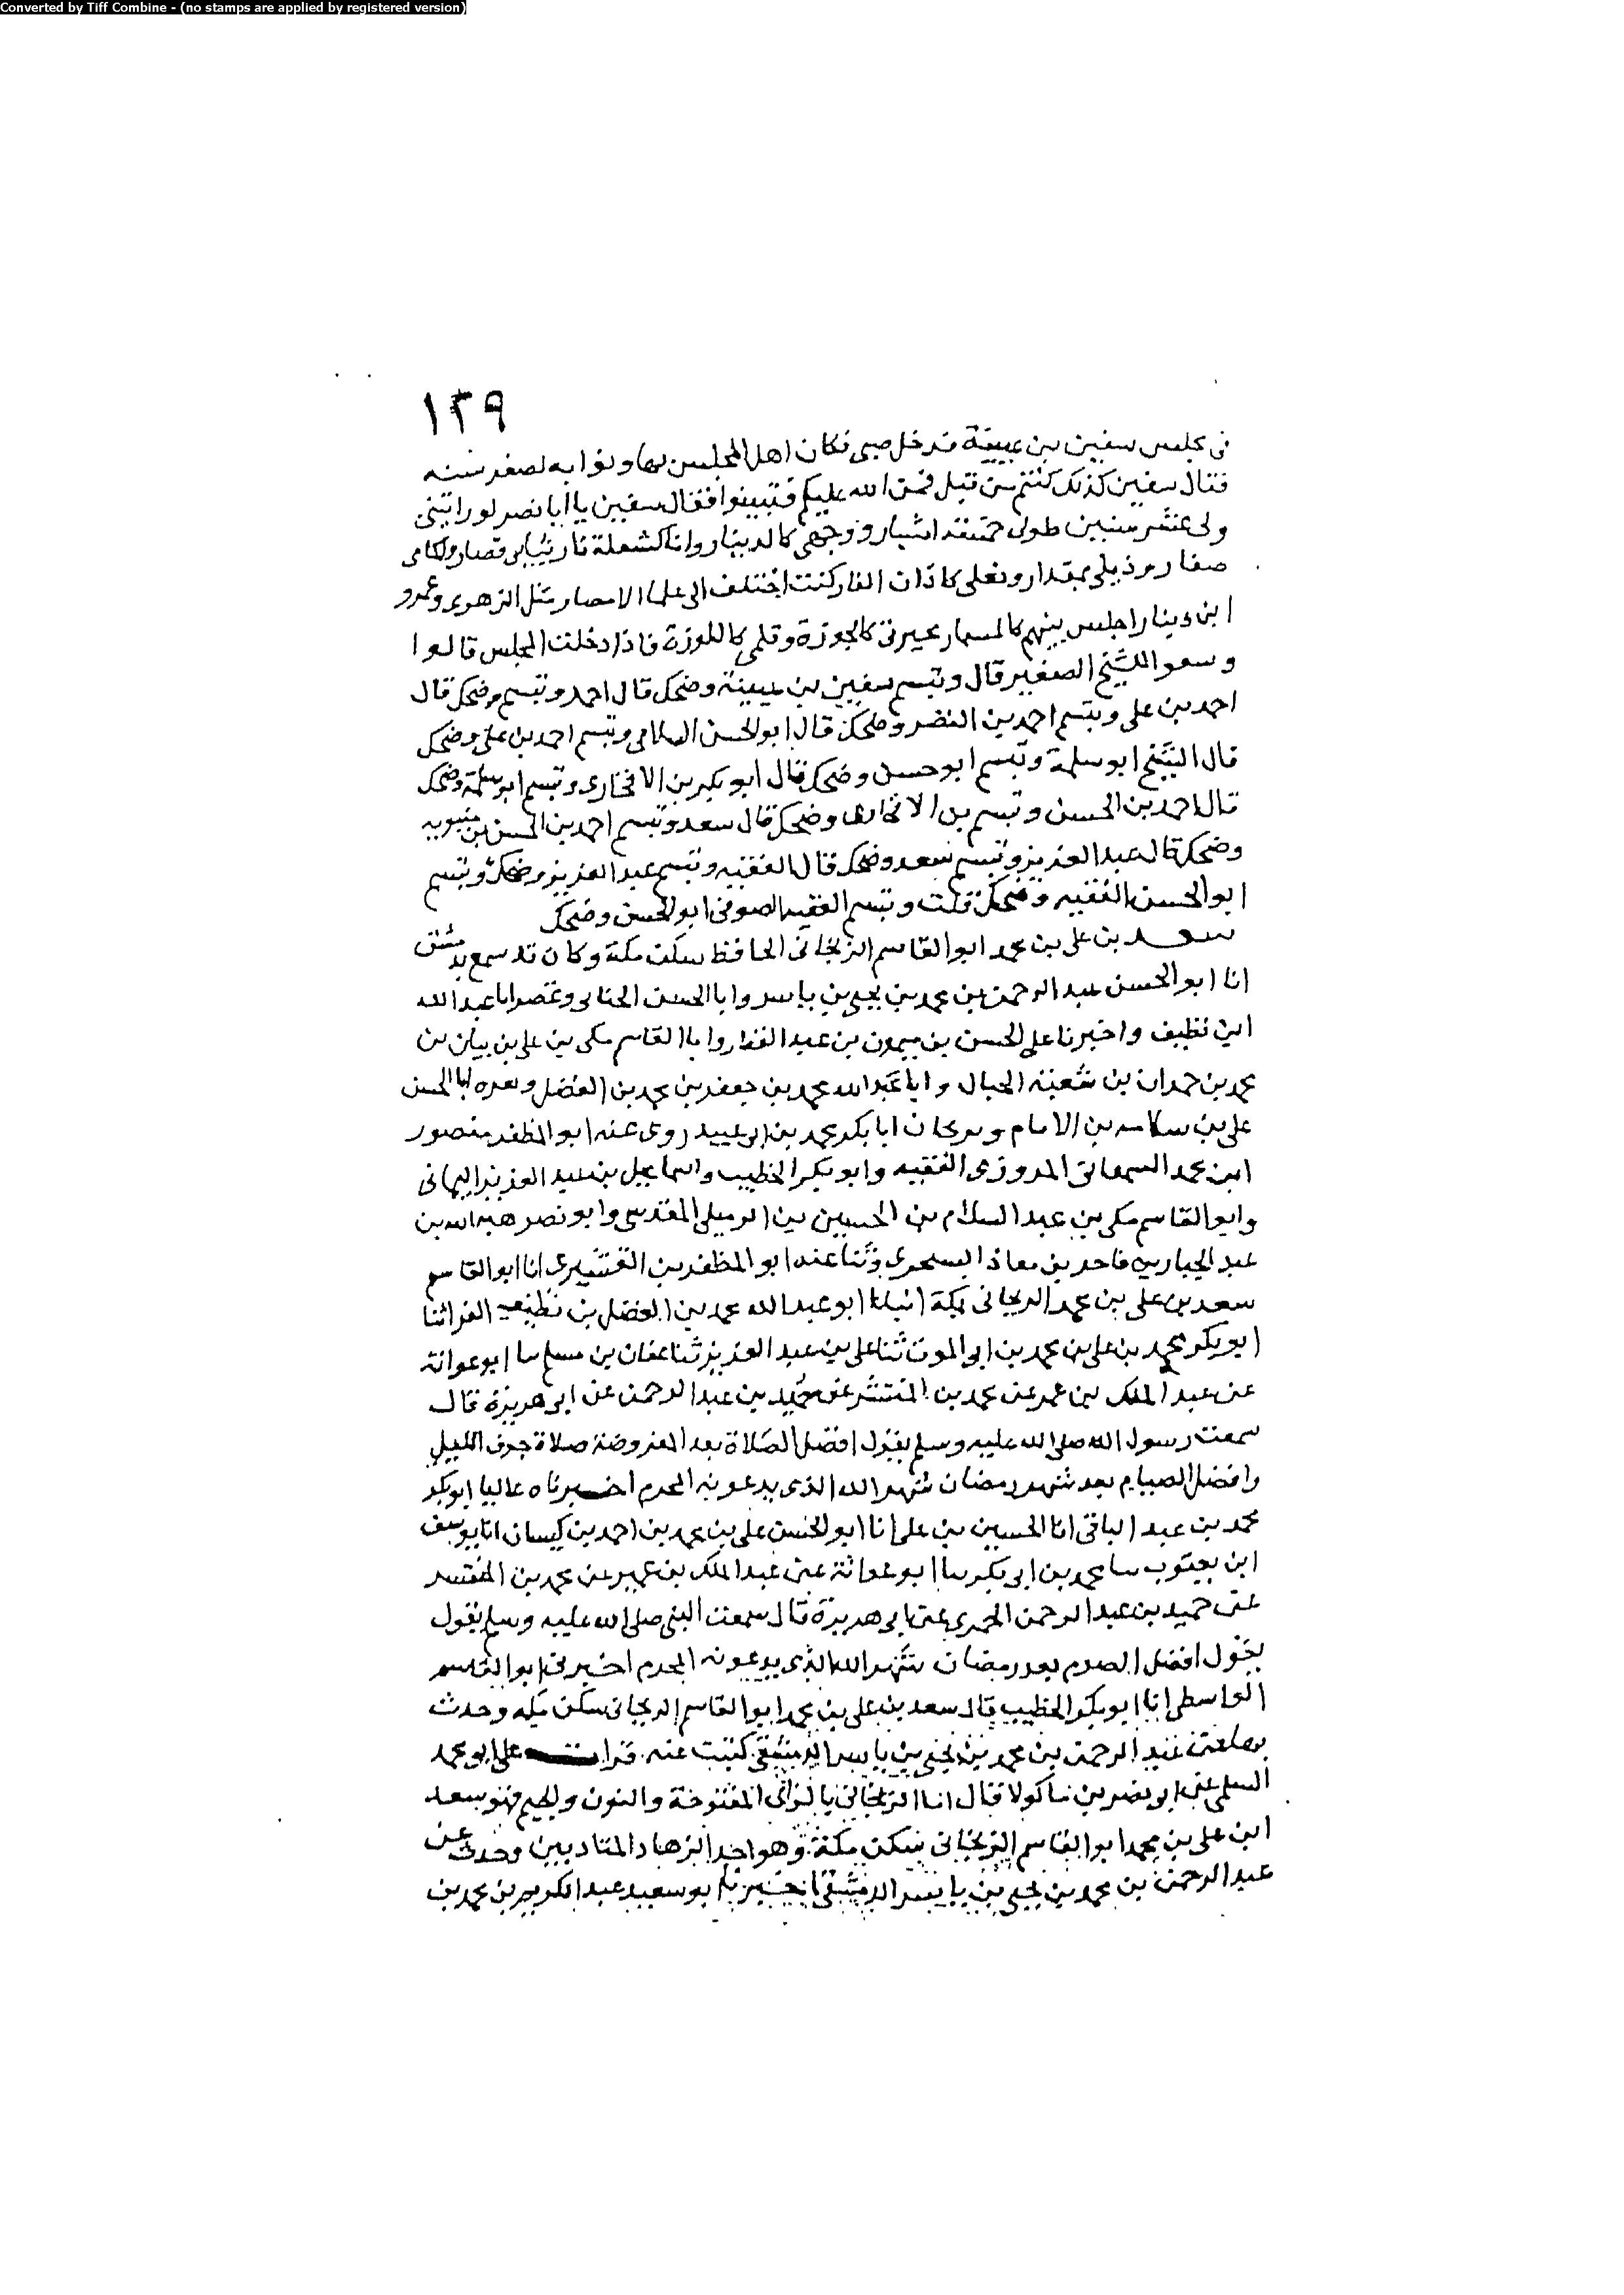 Converted by Tiff Combine - (no stamps are applied by registered version)
١٣٩
فى مجلس سفين بن عيينة فدخل صبى فكان اهل المجلس تهاونوا به لصغر سنه
فقال سفين كذلك كنتم من قبل فمن الله عليكم فتبينوا فقال سفين يا ابا نصر لو رايتنى
ولى عشر سنين طولى خمسة اشبار ووجهى كالدينار وانا كشعلة نار ثيابى قصار واكمامى
صغار وذيلى بمقدار ونعلى كاذان الفار كنت اختلف الى علما الامصار مثل الزهرى وعمرو
ابن دينار اجلس بينهم كالمسمار محبرتى كالجوزة وقلمى كاللوزة فاذا دخلت المجلس قالوا
وسعوا للشيخ الصغير قال وتبسم سفين بن عيينة وضحك قال احمد وتبسم وضحك قال
احمد بن على وتبسم احمد بن النضر وضحك قال ابو الحسن السلامى وتبسم احمد بن على وضحك
قال الشيخ ابو سلمة وتبسم ابو حسن وضحك قال ابو بكر بن الانخارى وتبسم ابو سلمة وضحك
قال احمد بن الحسن وتبسم بن الانخارى وضحك قال سعد وتبسم احمد بن الحسن بن
وضحك قال عبد العزيز وتبسم سعد وضحك قال الفقيه وتبسم عبد العزيز وضحك وتبسم
ابو الحسن الفقيه وضحك قلت وتبسم الفقيه الصوفى ابو الحسن وضحك
سعد بن على بن محمد ابو القاسم الزنجانى الحافظ سكن مكة وكان قد سمع بدمشق
انا ابو الحسن عبد الرحمن بن محمد بن يحيى بن ياسر وابا الحسن الحنائى وبمصر ابا عبد الله
ابن نظيف واخبرنا على الحسن بن ميمون بن عبد الغفار وابا القاسم مكى بن على بن بيان بن
محمد بن حمدان بن الحبال وابا عبد الله محمد بن جعفر بن محمد بن الفضل ابا الحسن
على بن سلامه بن الامام ابا بكر محمد بن ابى عبيد روى عنه ابو المظفر منصور
ابن محمد السمعانى المروزى الفقيه وابو بكر الخطيب واسماعيل بن عبد العزيز اليمانى
وابو القاسم مكى بن عبد السلام بن الحسين بن الرميلى المقدسى وابو نصر هبه الله بن
عبد الجبار بن فاخر بن معاذ السجزى وثنا عنه ابو المظفر بن القشيرى انا ابو القاسم
سعد بن على بن محمد الزنجانى بمكة انبانا ابو عبد الله محمد بن الفضل بن نظيف الفرا ثنا
ابو بكر محمد بن على بن محمد بن ابى الموت ثنا على بن عبد العزيز ثنا عفان بن مسلم سا ابو عوانة
عن عبد الملك بن عمر عن محمد بن المنتشر عن حميد بن عبد الرحمن عن ابى هريرة قال
سمعت رسول الله صلى الله عليه وسلم يقول افضل الصلاة بعد المفروضة صلاة جوف الليل
وافضل الصيام بعد شهر رمضان شهر الله الذى يدعونه المحرم اخبرناه عاليا ابو بكر
محمد بن عبد الباقى انا الحسين بن على انا ابو الحسن على بن محمد بن احمد بن كيسان انا يوسف
ابن يعقوب سا محمد بن ابى بكر سا ابو عوانة عن عبد الملك بن عمير عن محمد بن المنتشر
عن حميد بن عبد الرحمن الحميرى عن ابى هريرة قال سمعت النبى صلى الله عليه وسلم يقول
يقول افضل الصوم بعد رمضان شهر الله الذى يدعونه المحرم اخبرنى ابو القاسم
الواسطى انا ابو بكر الخطيب قال سعد بن على بن محمد ابو القاسم الزنجانى سكن مكه وحدث
بها عن عبد الرحمن بن محمد بن يحيى بن ياسر الدمشقى كتبت عنه قرات على ابو محمد
السلمى عن ابو نصر بن ماكولا قال اما الزنجانى بالزاى المفتوحة والنون والجيم فهو سعد
ابن على بن محمد ابو القاسم الزنجانى سكن مكة وهو احد الزهاد المتادبين وحدث عن
عبد الرحمن بن محمد بن يحيى بن ياسر الدمشقى اخبرنا ابو سعيد عبد الكريم بن محمد بن